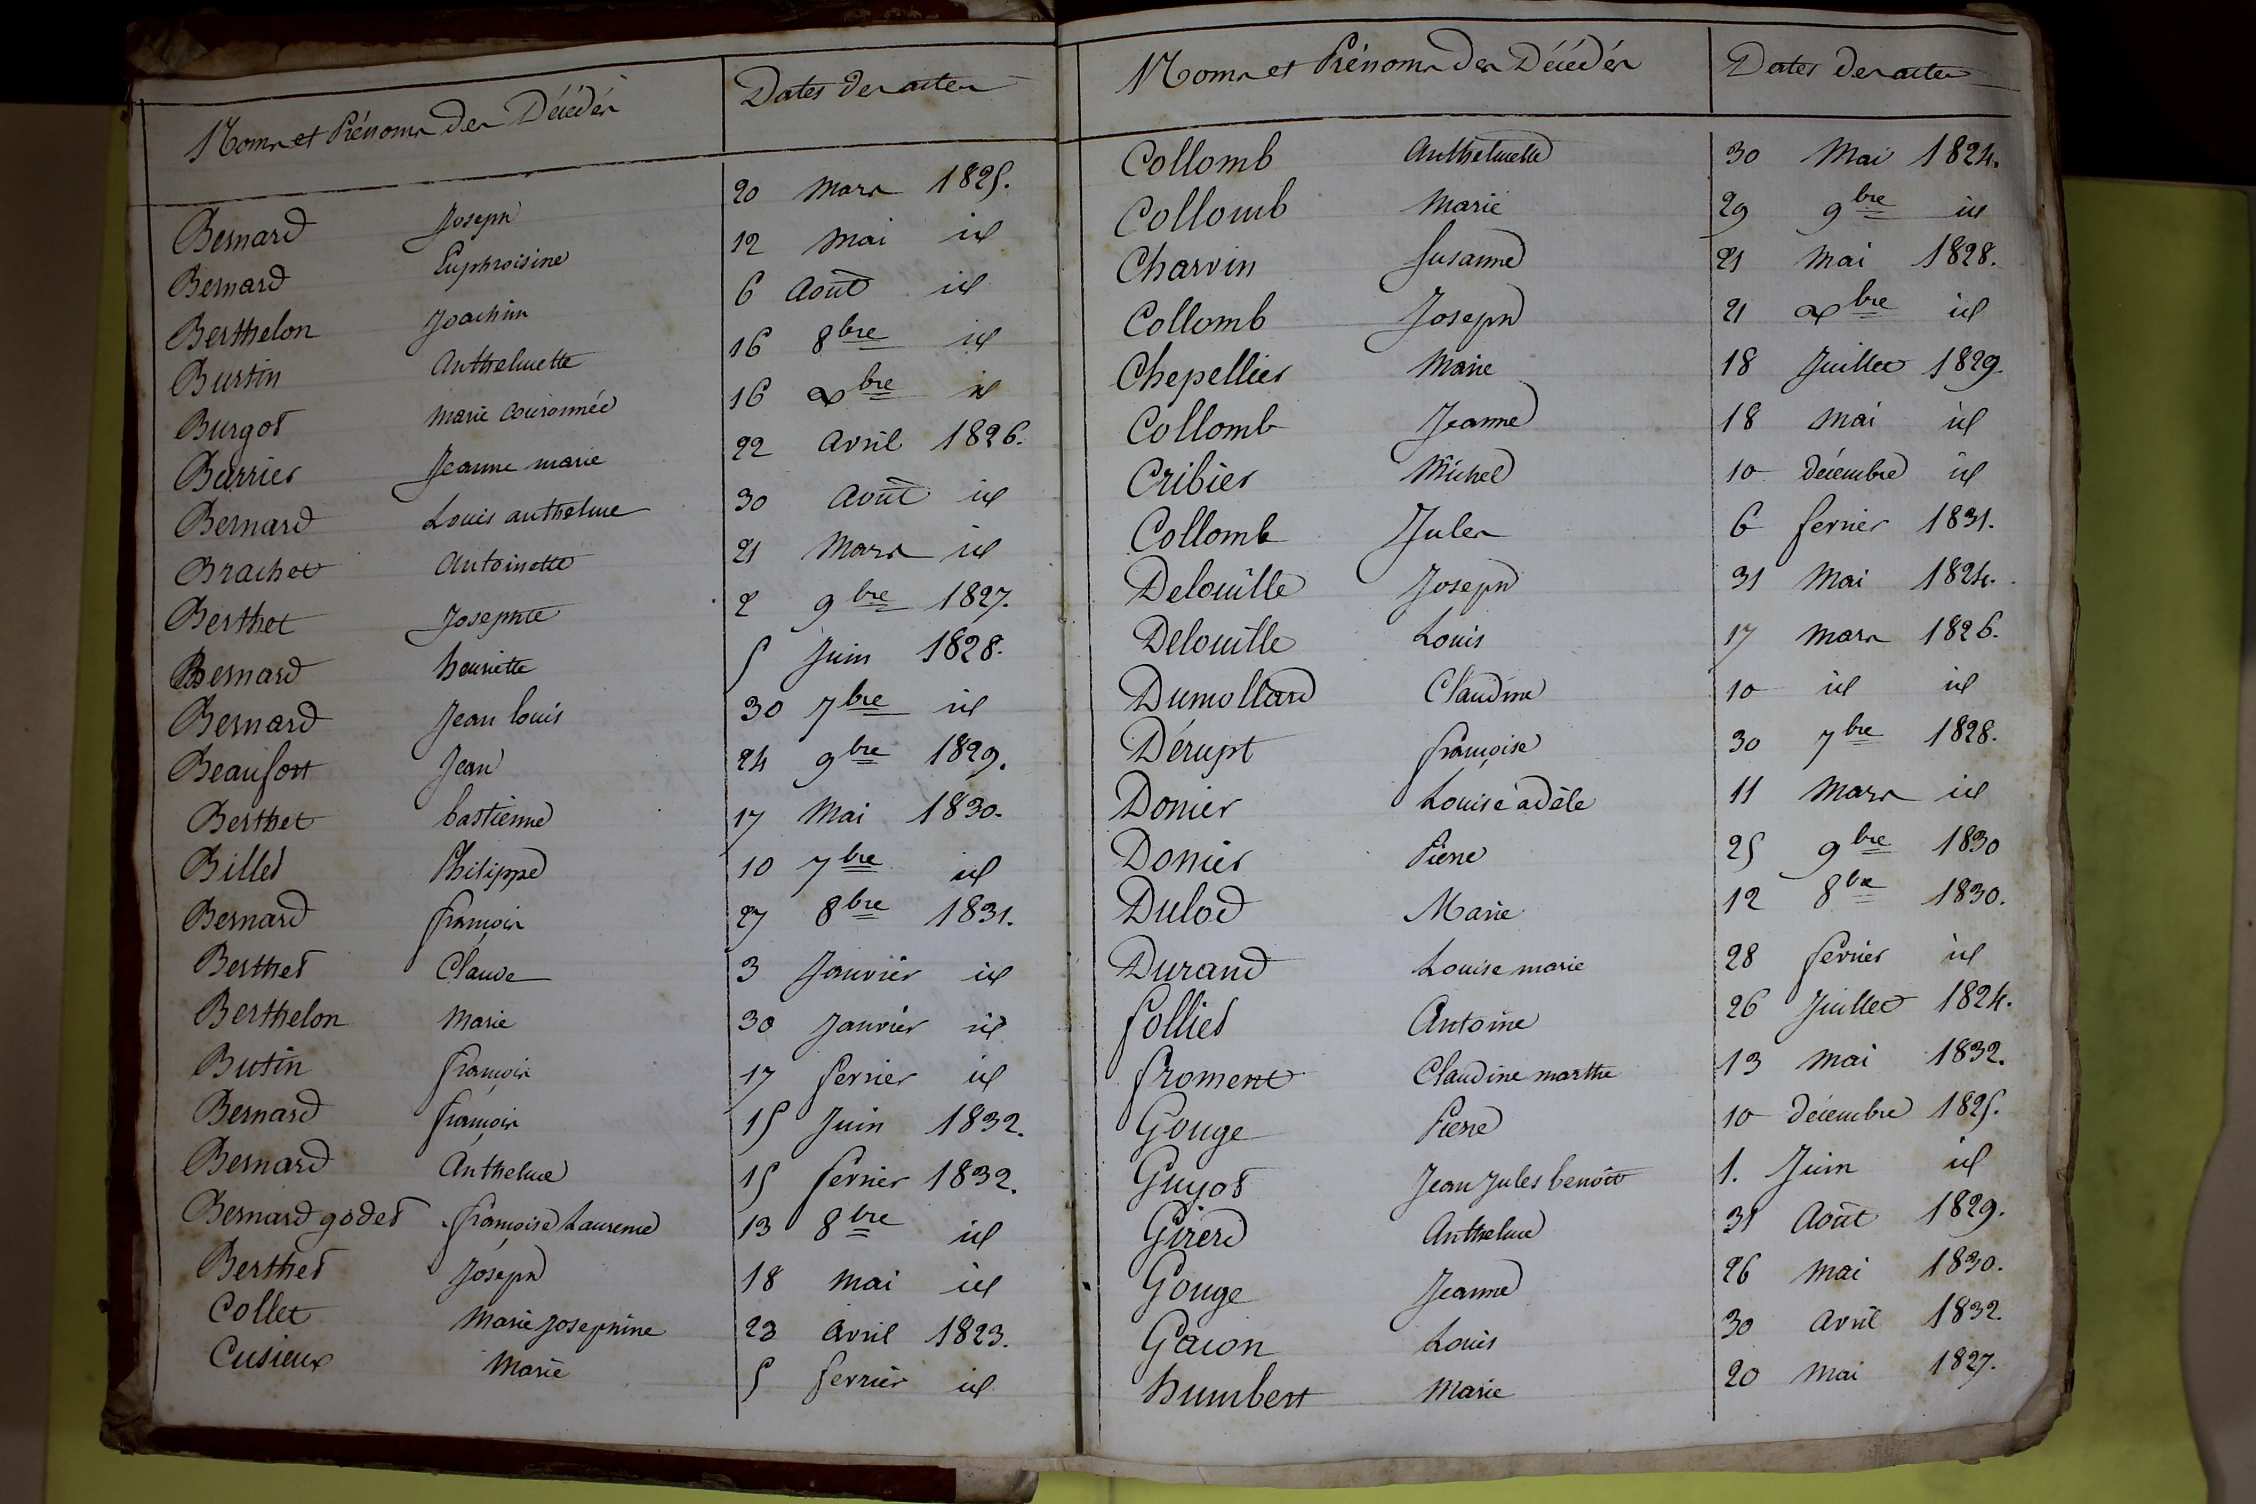 Noms et Prénoms des Décédés Dates des actes
Bernard Joseph 20 Mars 1825.
Bernard Euphroisine 12 Mai id
Berthelon Joachim 6 Août id
Burtin Anthelmette 16 8bre id
Burgot Marie Couronnée 16 xbre id
Barrier Jeanne marie 22 avril 1826.
Bernard Louis anthelme 30 Août id
Brachet Antoinette 21 Mars id
Berthet Josephte 2 9bre 1827.
Bernard henriette 5 Juin 1828.
Bernard Jean louis 30 7bre id
Beaufort Jean 24 9bre 1829.
Berthet bastienne 17 Mai 1830.
Billet Philippe 10 7bre id
Bernard françois 27 8bre 1831.
Berthet Claude 3 Janvier id
Berthelon Marie 30 Janvier id
Butin françois 17 fevrier id
Bernard françois 15 Juin 1832.
Bernard Anthelme 15 fevrier 1832.
Bernard godet françoise Laurence 13 8bre id
Berthet Joseph 18 mai id
Collet Marie Josephine 23 avril 1823.
Cusieux Marie 5 fevrier id
Noms et Prénoms des Décédés Dates des actes
Collomb Anthelmette 30 Mai 1824.
Collomb Marie 29 9bre id
Charvin Susanne 21 Mai 1828.
Collomb Joseph 21 xbre id
Chepellier Marie 18 Juillet 1829.
Collomb Jeanne 18 Mai id
Cribier Michel 10 décembre id
Collomb Jules 6 fevrier 1831.
Delouille Joseph 31 Mai 1824.
Delouille Louis 17 Mars 1826.
Dumollard Claudine 10 id id
Dérupt françoise 30 7bre 1828.
Donier Louise adèle 11 Mars id
Donier Pierre 25 9bre 1830
Dulod Marie 12 8bre 1830.
Durand Louise marie 28 fevrier id
folliet Antoine 26 Juillet 1824.
froment Claudine marthe 13 mai 1832.
Gouge Pierre 10 décembre 1825.
Guyot Jean Jules benoit 1. Juin id
Girerd Anthelme 31 Août 1829.
Gouge Jeanne 26 Mai 1830.
Gacon Louis 30 avril 1832.
humbert Marie 20 Mai 1827.